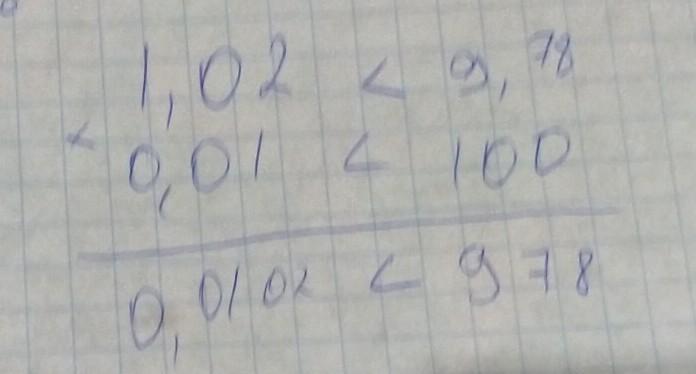 1,02 < 9,78
×
0,01 < 100
0,0102 < 978